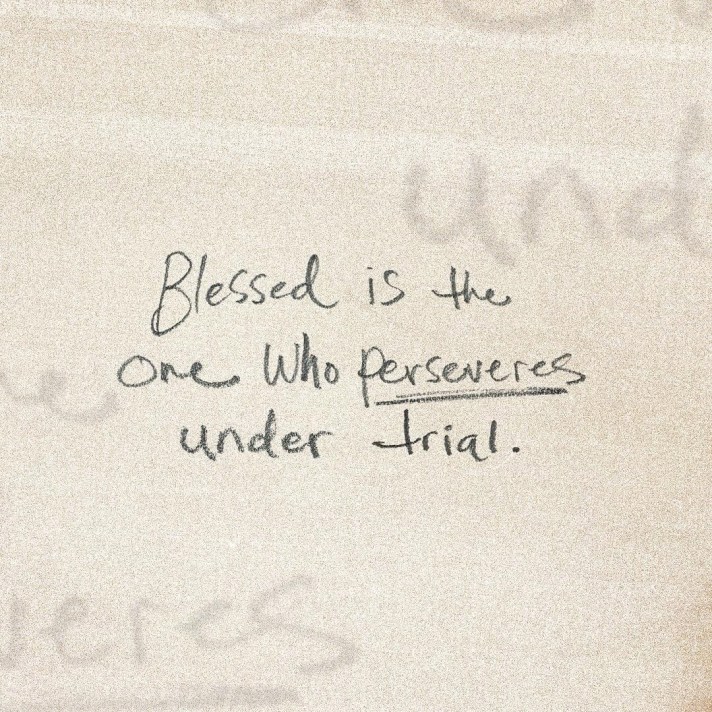 und
Blessed is the
one who perseveres
under trial.
veres